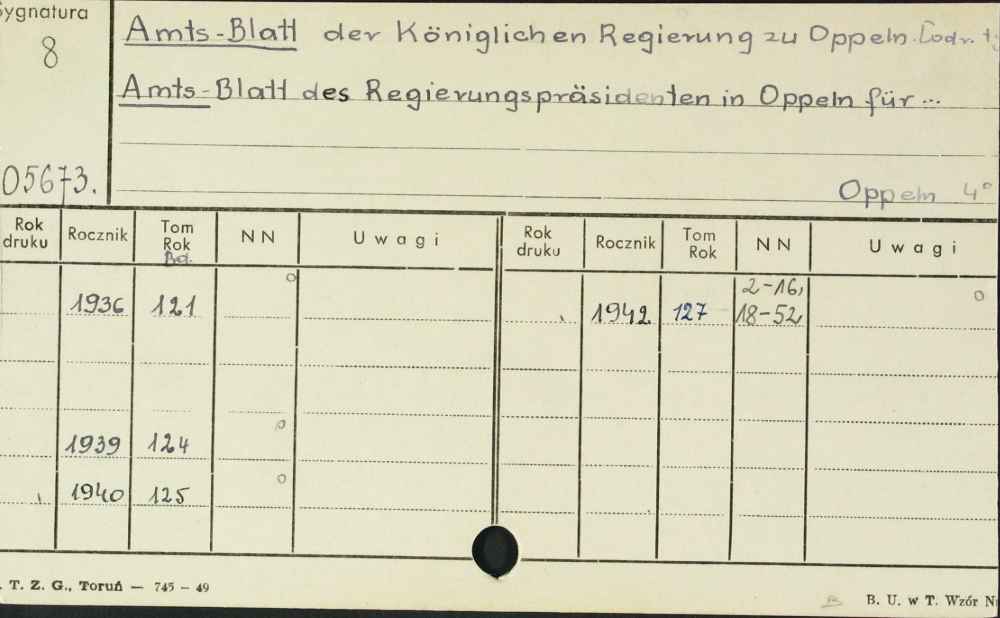 Sygnatura
8
Amts-Blatt der Königlichen Regierung zu Oppeln. [odr. t
Amts-Blatt des Regierungspräsidenten in Oppeln für...
05673.
Oppeln 4°
Rok druku Rocznik Tom Rok Bd. NN Uwagi Rok druku Rocznik Tom Rok NN Uwagi
1936 121 1942 127 2-16, 18-52
1939 124
1940 125
. T. Z. G., Toruń — 745 — 49
B. U. w T. Wzór N